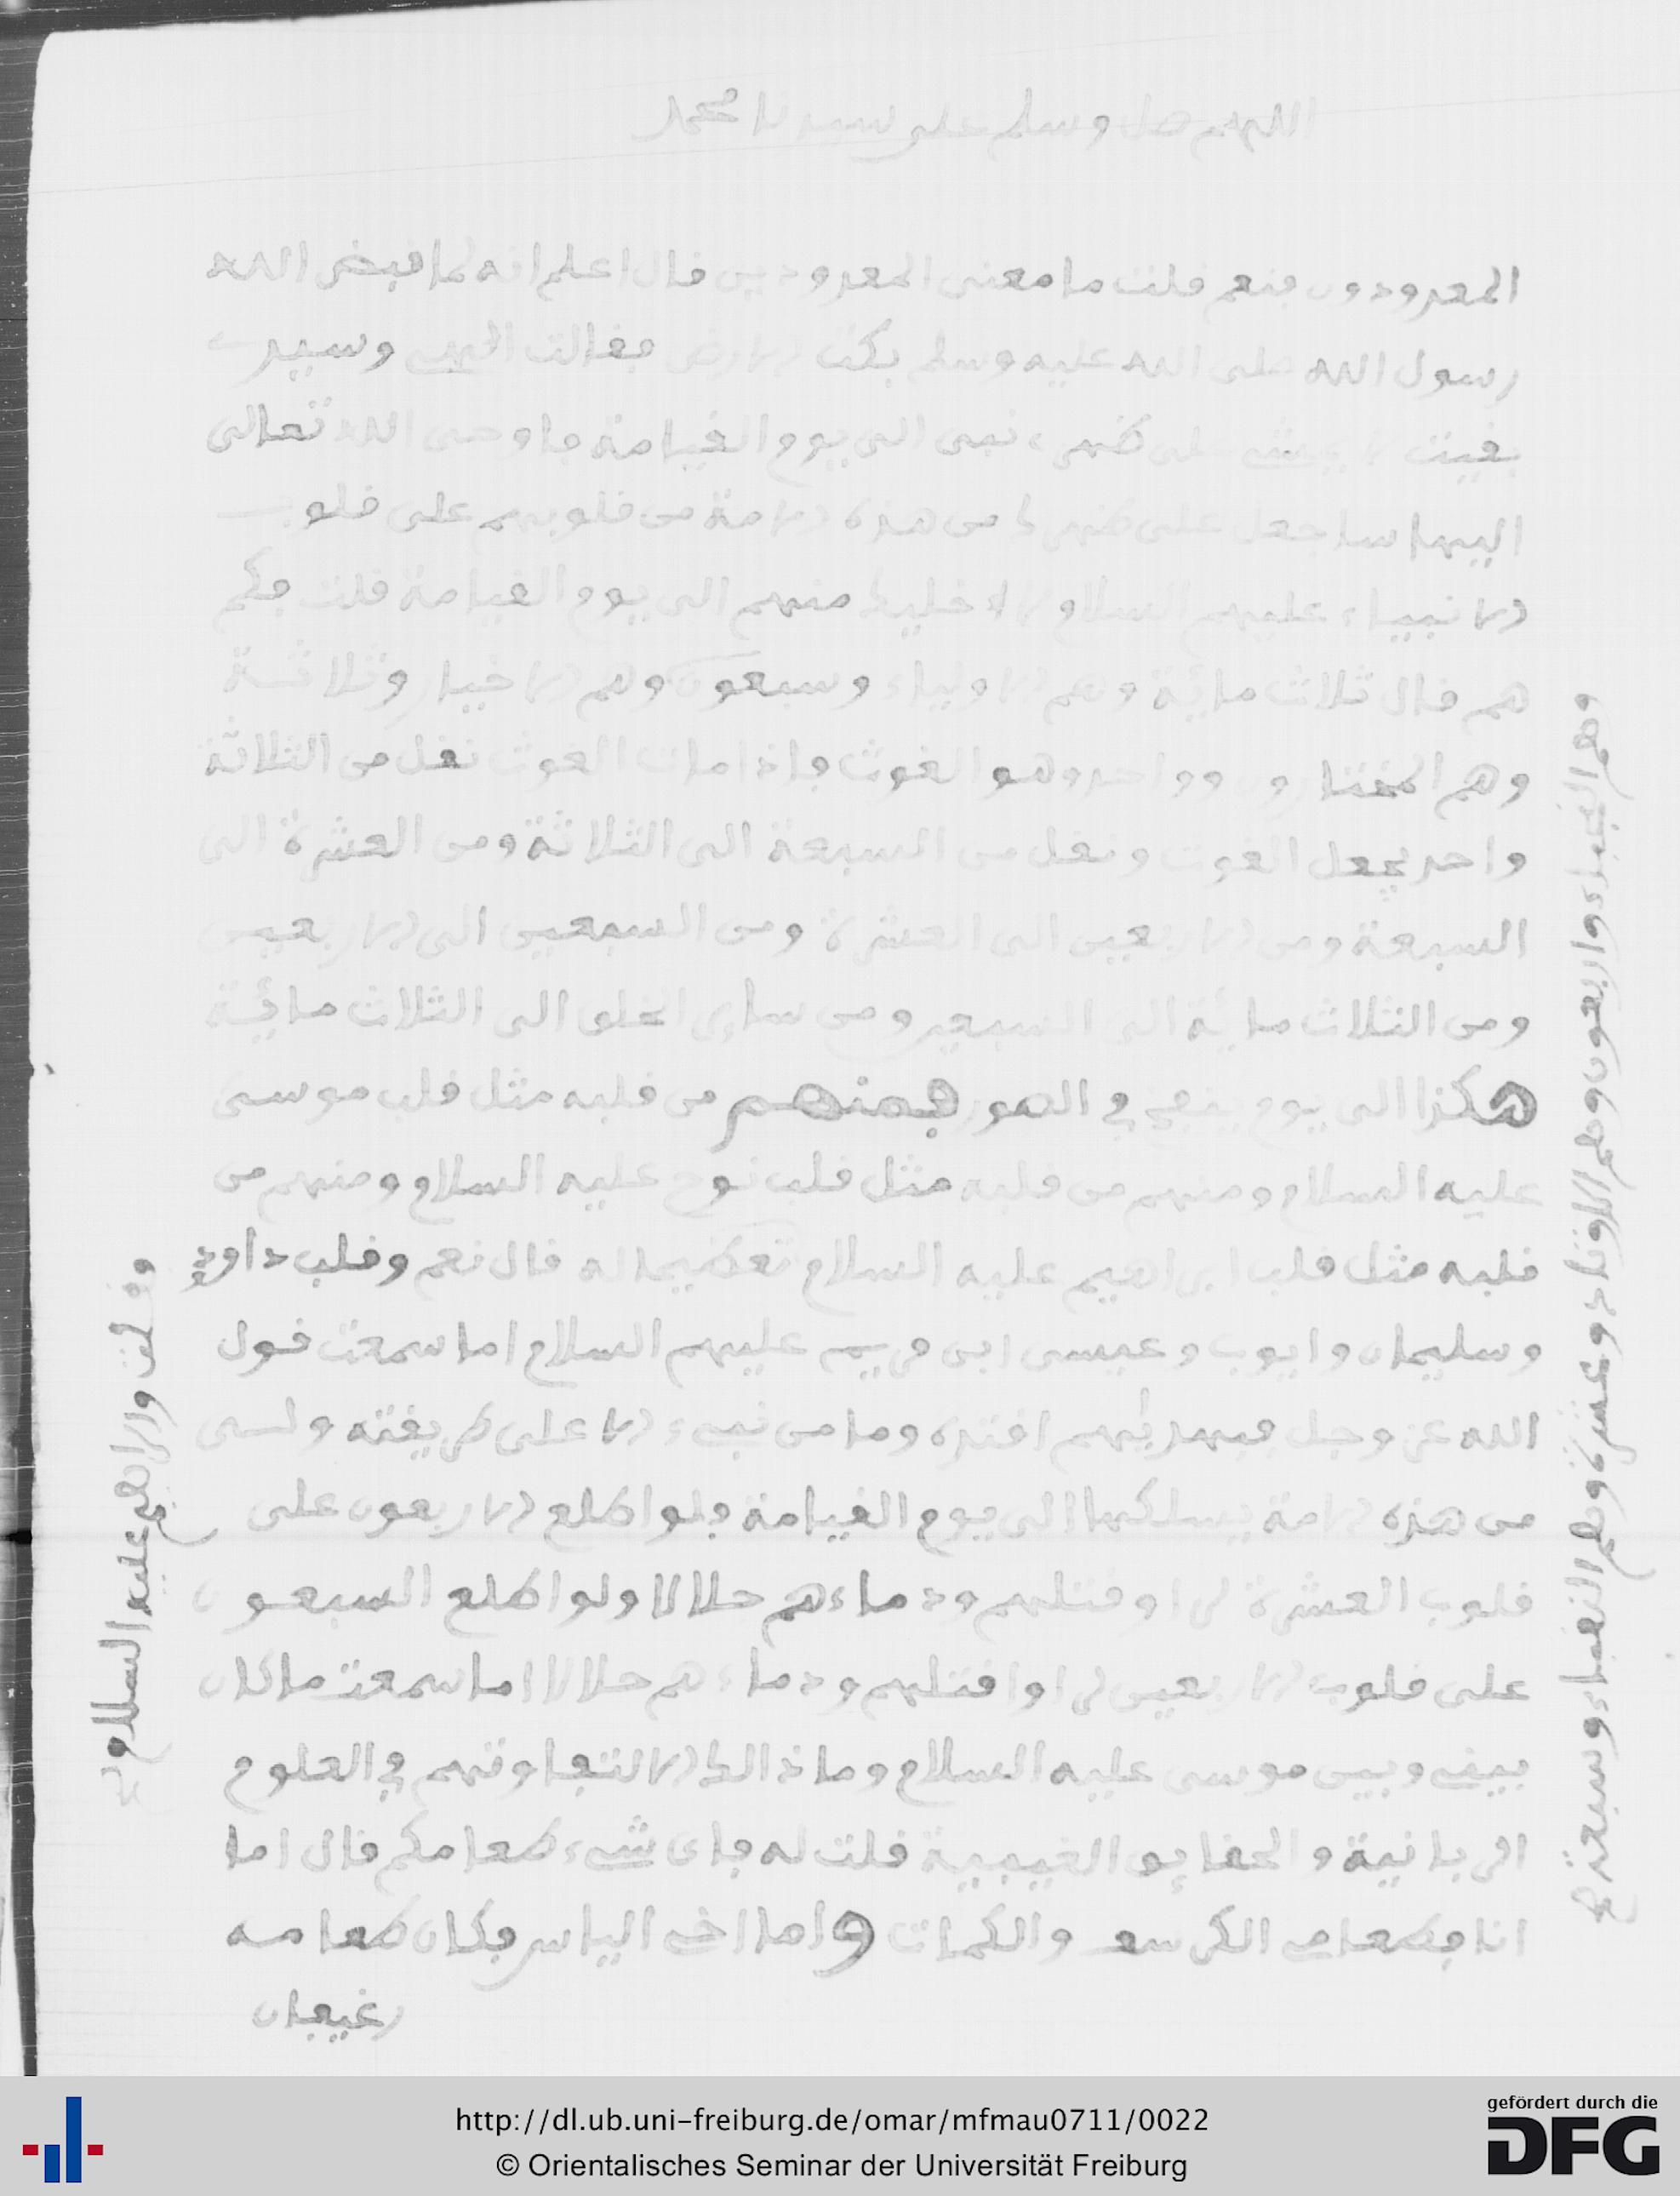 اللهم صل وسلم على سيدنا محمد
المعدودون فنعم قلت ما معنى المعدودين قال اعلم انه لما قبض الله
رسول الله صلى الله عليه وسلم بكت الارض فقالت الهي وسيدي
بقيت لا يمشي على ظهري نبي الى يوم القيامة فاوحى الله تعالى
اليها ساجعل على ظهرك من هذه الامة من قلوبهم على قلوب
الانبياء عليهم السلام لا اخليك منهم الى يوم القيامة قلت فكم
هم قال ثلاث مائة وهم الاولياء وسبعون وهم الاخيار وثلاثة
وهم المختارون وواحد وهو الغوث فاذا مات الغوث نقل من الثلاثة
واحد يجعل الغوث ونقل من السبعة الى الثلاثة ومن العشرة الى
السبعة ومن الاربعين الى العشرة ومن السبعين الى الاربعين
ومن الثلاث مائة الى السبعين ومن ساير الخلق الى الثلاث مائة
هكذا الى يوم ينفخ في الصور فمنهم من قلبه مثل قلب موسى
عليه السلام ومنهم من قلبه مثل قلب نوح عليه السلام ومنهم من
قلبه مثل قلب ابراهيم عليه السلام تعظيما له قال نعم وقلب داوود
وسليمان وايوب وعيسى ابن مريم عليهم السلام اما سمعت قول
الله عز وجل فبهديهم اقتده وما من نبيء الا على طريقته ولسى
من هذه الامة يسلكها الى يوم القيامة فلو اطلع الاربعون على
قلوب العشرة لراو قتلهم ودماءهم حلالا ولو اطلع السبعون
على قلوب الاربعين لراوا قتلهم ودماءهم حلالا اما سمعت ما كان
بيني وبين موسى عليه السلام وما ذالك الا لتفاوتهم في العلوم
الربانية والحقايق الغيبية قلت له فاى شيء طعامكم قال اما
انا فطعامي الكرسف والكمات واما اخي الياس فكان طعامه
رغيفان
وهم النجباء واربعون وهم الاوتاد وعشرة وهم النقباء وسبعة
وقلت ولابراهيم عليه السلام
http://dl.ub.uni-freiburg.de/omar/mfmau0711/0022
© Orientalisches Seminar der Universität Freiburg
gefördert durch die
DFG